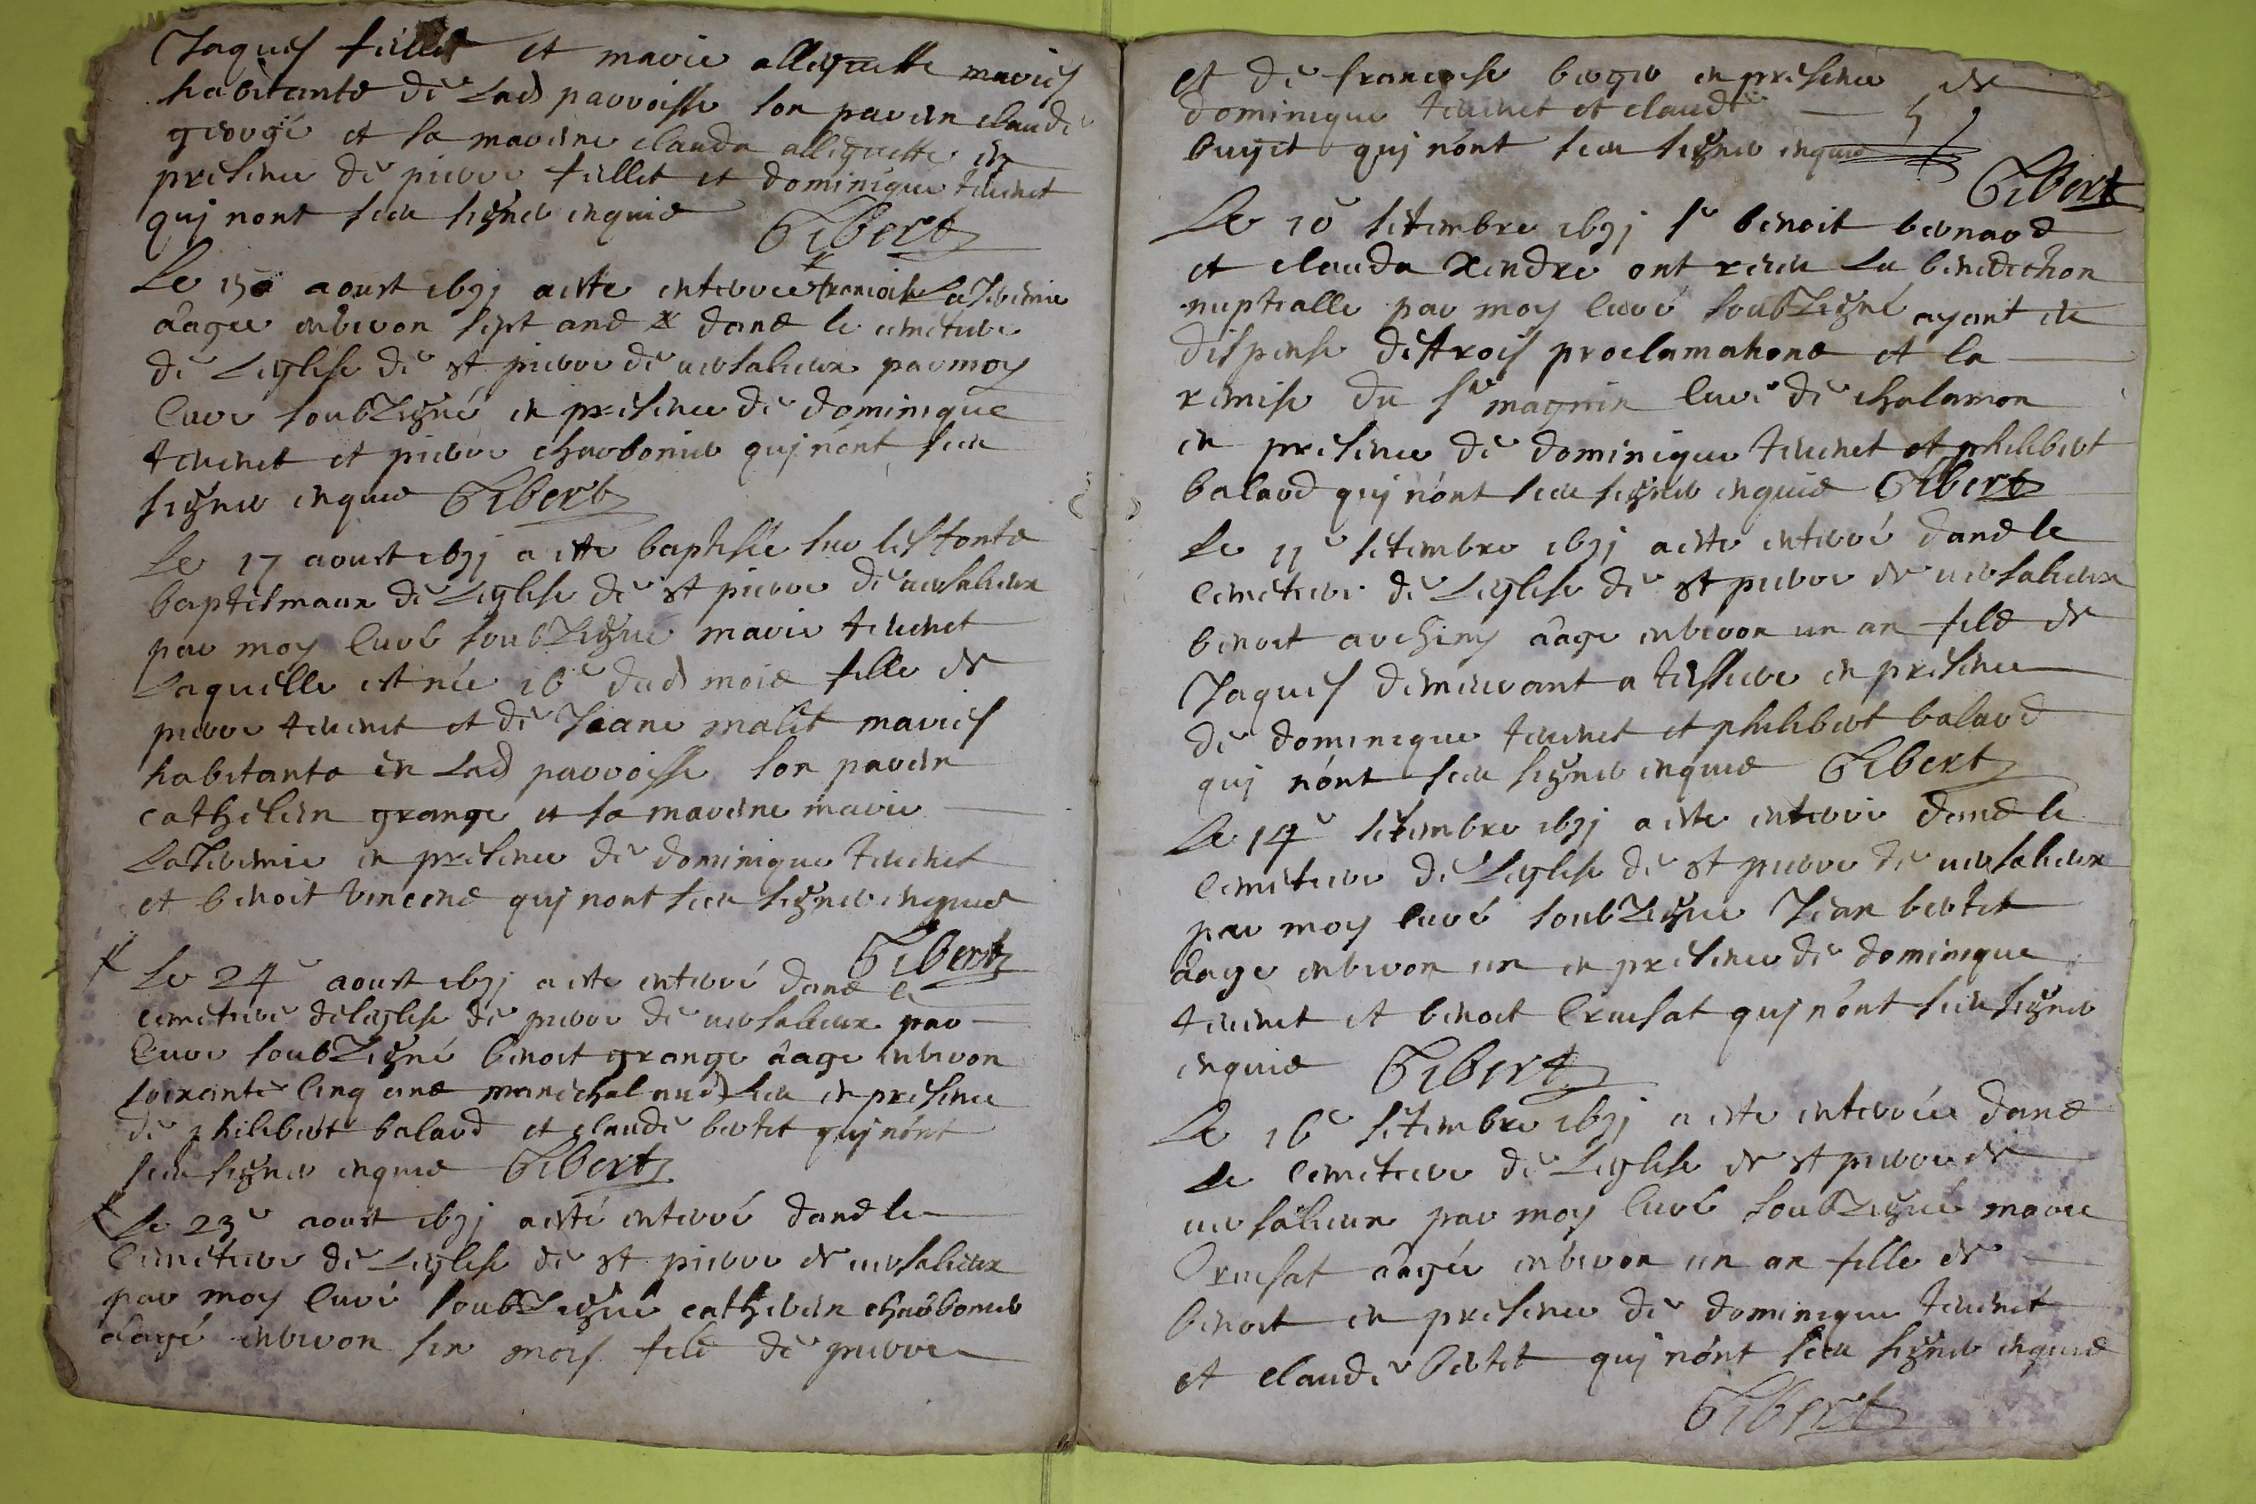 Jaques fillet et marie alleguette mariés
habitants de lad parroisse son parein claude
george et sa mareine clauda alleguette en
presence de pierre fillet et dominique teuenet
quj nont sceu signer enquis Gibert
Le 15e aoust 1691 a este enterrée francoise
âagee enbiron sept ans dans le cimetiere
de Leglise de st pierre de uersalieux par moy
Curé soubzsigné en presence de dominique
teuenet et pierre charbonier quj nont sceu
signer enquis Gibert
Le 17 aoust 1691 a este baptisée sur les fonts
baptismaux de Leglise de st pierre de uersalieux
par moy Curé soubzsigné marie teuenet
Laquelle est née 16e dud mois fille de
pierre teuenet et de Jeane malet mariés
habitants en lad parroisse son parein
cathelin grange et sa mareine marie
en presence de dominique teuenet
et benoit Vincens quj nont sceu signer enquis
Gibert
Le 24e aoust 1691 a este enterré dans le
cimetiere de leglise de pierre de uersalieux par
Curé soubzsigné benoit grange âage enbiron
soixante cinq ans marechal aud lieu en presence
de philibert balard et claude bertet quj nont
sceu signer enquis Gibert
Le 23e aoust 1691 a esté enterré dans le
Cimetiere de Leglise de st pierre de uersalieux
par moy Curé soubzsigné catherin charbonier
âagé enbiron six mois fils de pierre
et de francoise berger en presence de
dominique teuenet et claude
buyet quj nont sceu signer enquis
Gibert
Le 10e setembre 1691 sr benoit bernard
et clauda Xendre ont receu La benediction
nuptialle par moy Curé soubzsigné ayant eu
dispense des trois proclamations et la
remise du sr magnin Curé de chalamon
en presence de dominique teuenet et philibert
balard quj nont sceu signer enquis Gibert
Le 11e setembre 1691 a este enterré dans le
Cimetiere de Leglise de st pierre de uersalieux
benoit archiny âage enbiron un an fils de
Jaques demeurant a tessiere en presence
de dominique teuenet et philibert balard
quj nont sceu signer enquis Gibert
Le 14e setembre 1691 a este enterré dans le
Cimetiere de Leglise de st pierre de uersalieux
par moy Curé soubzsigné Jean bertet
âage enbiron un en presence de dominique
teuenet et benoit Crusat quj nont sceu signer
enquis Gibert
Le 16e setembre 1691 a este enterrée dans
Le Cimetiere de Leglise de st pierre de
uersalieux par moy Curé soubzsigné marie
Crusat âagée enbiron un an fille de
benoit en presence de dominique teuenet
et claude bertet quj nont sceu signer enquis
Gibert